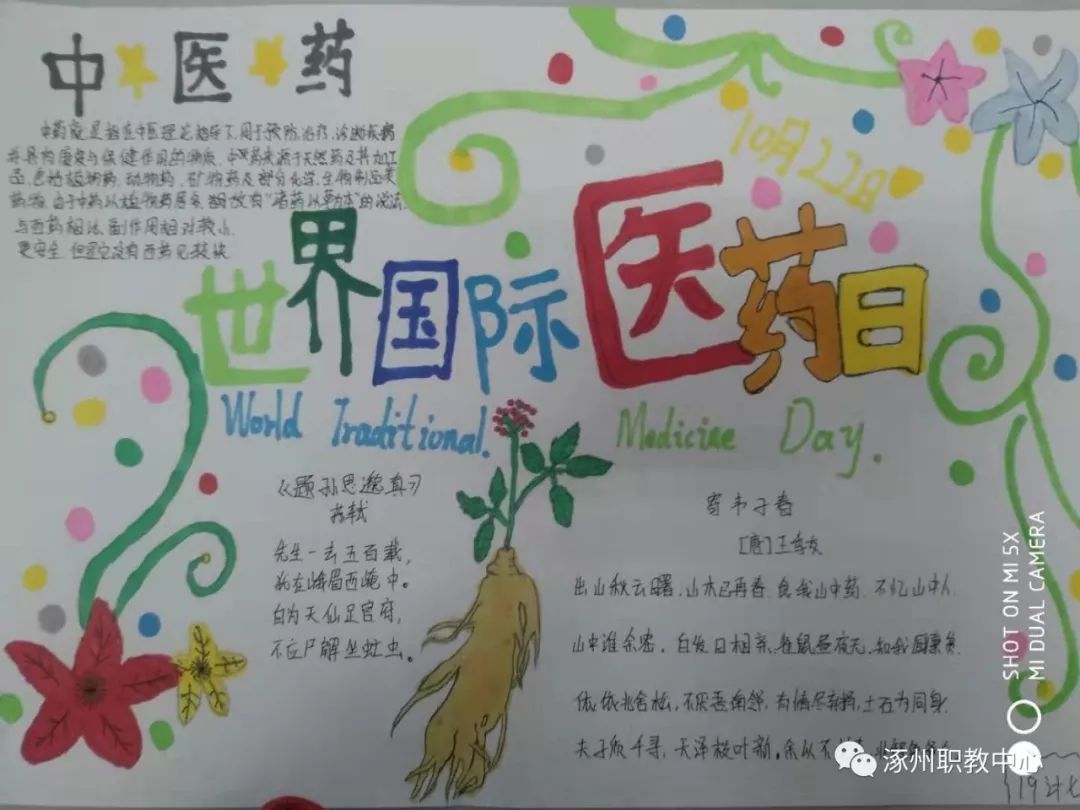 中医药
10月22日
中药就是指在中医理论指导下,用于预防、治疗、诊断疾病
并具有康复与保健作用的物质。中药来源于天然药及其加工
品,包括植物药、动物药、矿物药及部分化学、生物制品类
药物。由于中药以植物药居多,故有"诸药以草为本"的说法。
与西药相比,副作用相对较小,
更安全,但是没有西药见效快
世界国际医药日
World Traditional. Medicine Day.
《题孙思邈真》
苏轼
先生一去五百载,
犹在峨眉西崦中。
自为天仙足官府,
不应尸解坐虻虫。
寄韦子春
[唐]王
出山秋云曙,山木已再春.食我山中药,不忆山中人.
山中谁余密,白发日相亲.鼠昼夜无,知我厨贫.
依依北舍松,不厌吾南邻.有情尽弃,土石为同身.
夫子质千寻,天泽枝叶新.余从不
涿州职教中心
SHOT ON MI 5X
MI DUAL CAMERA